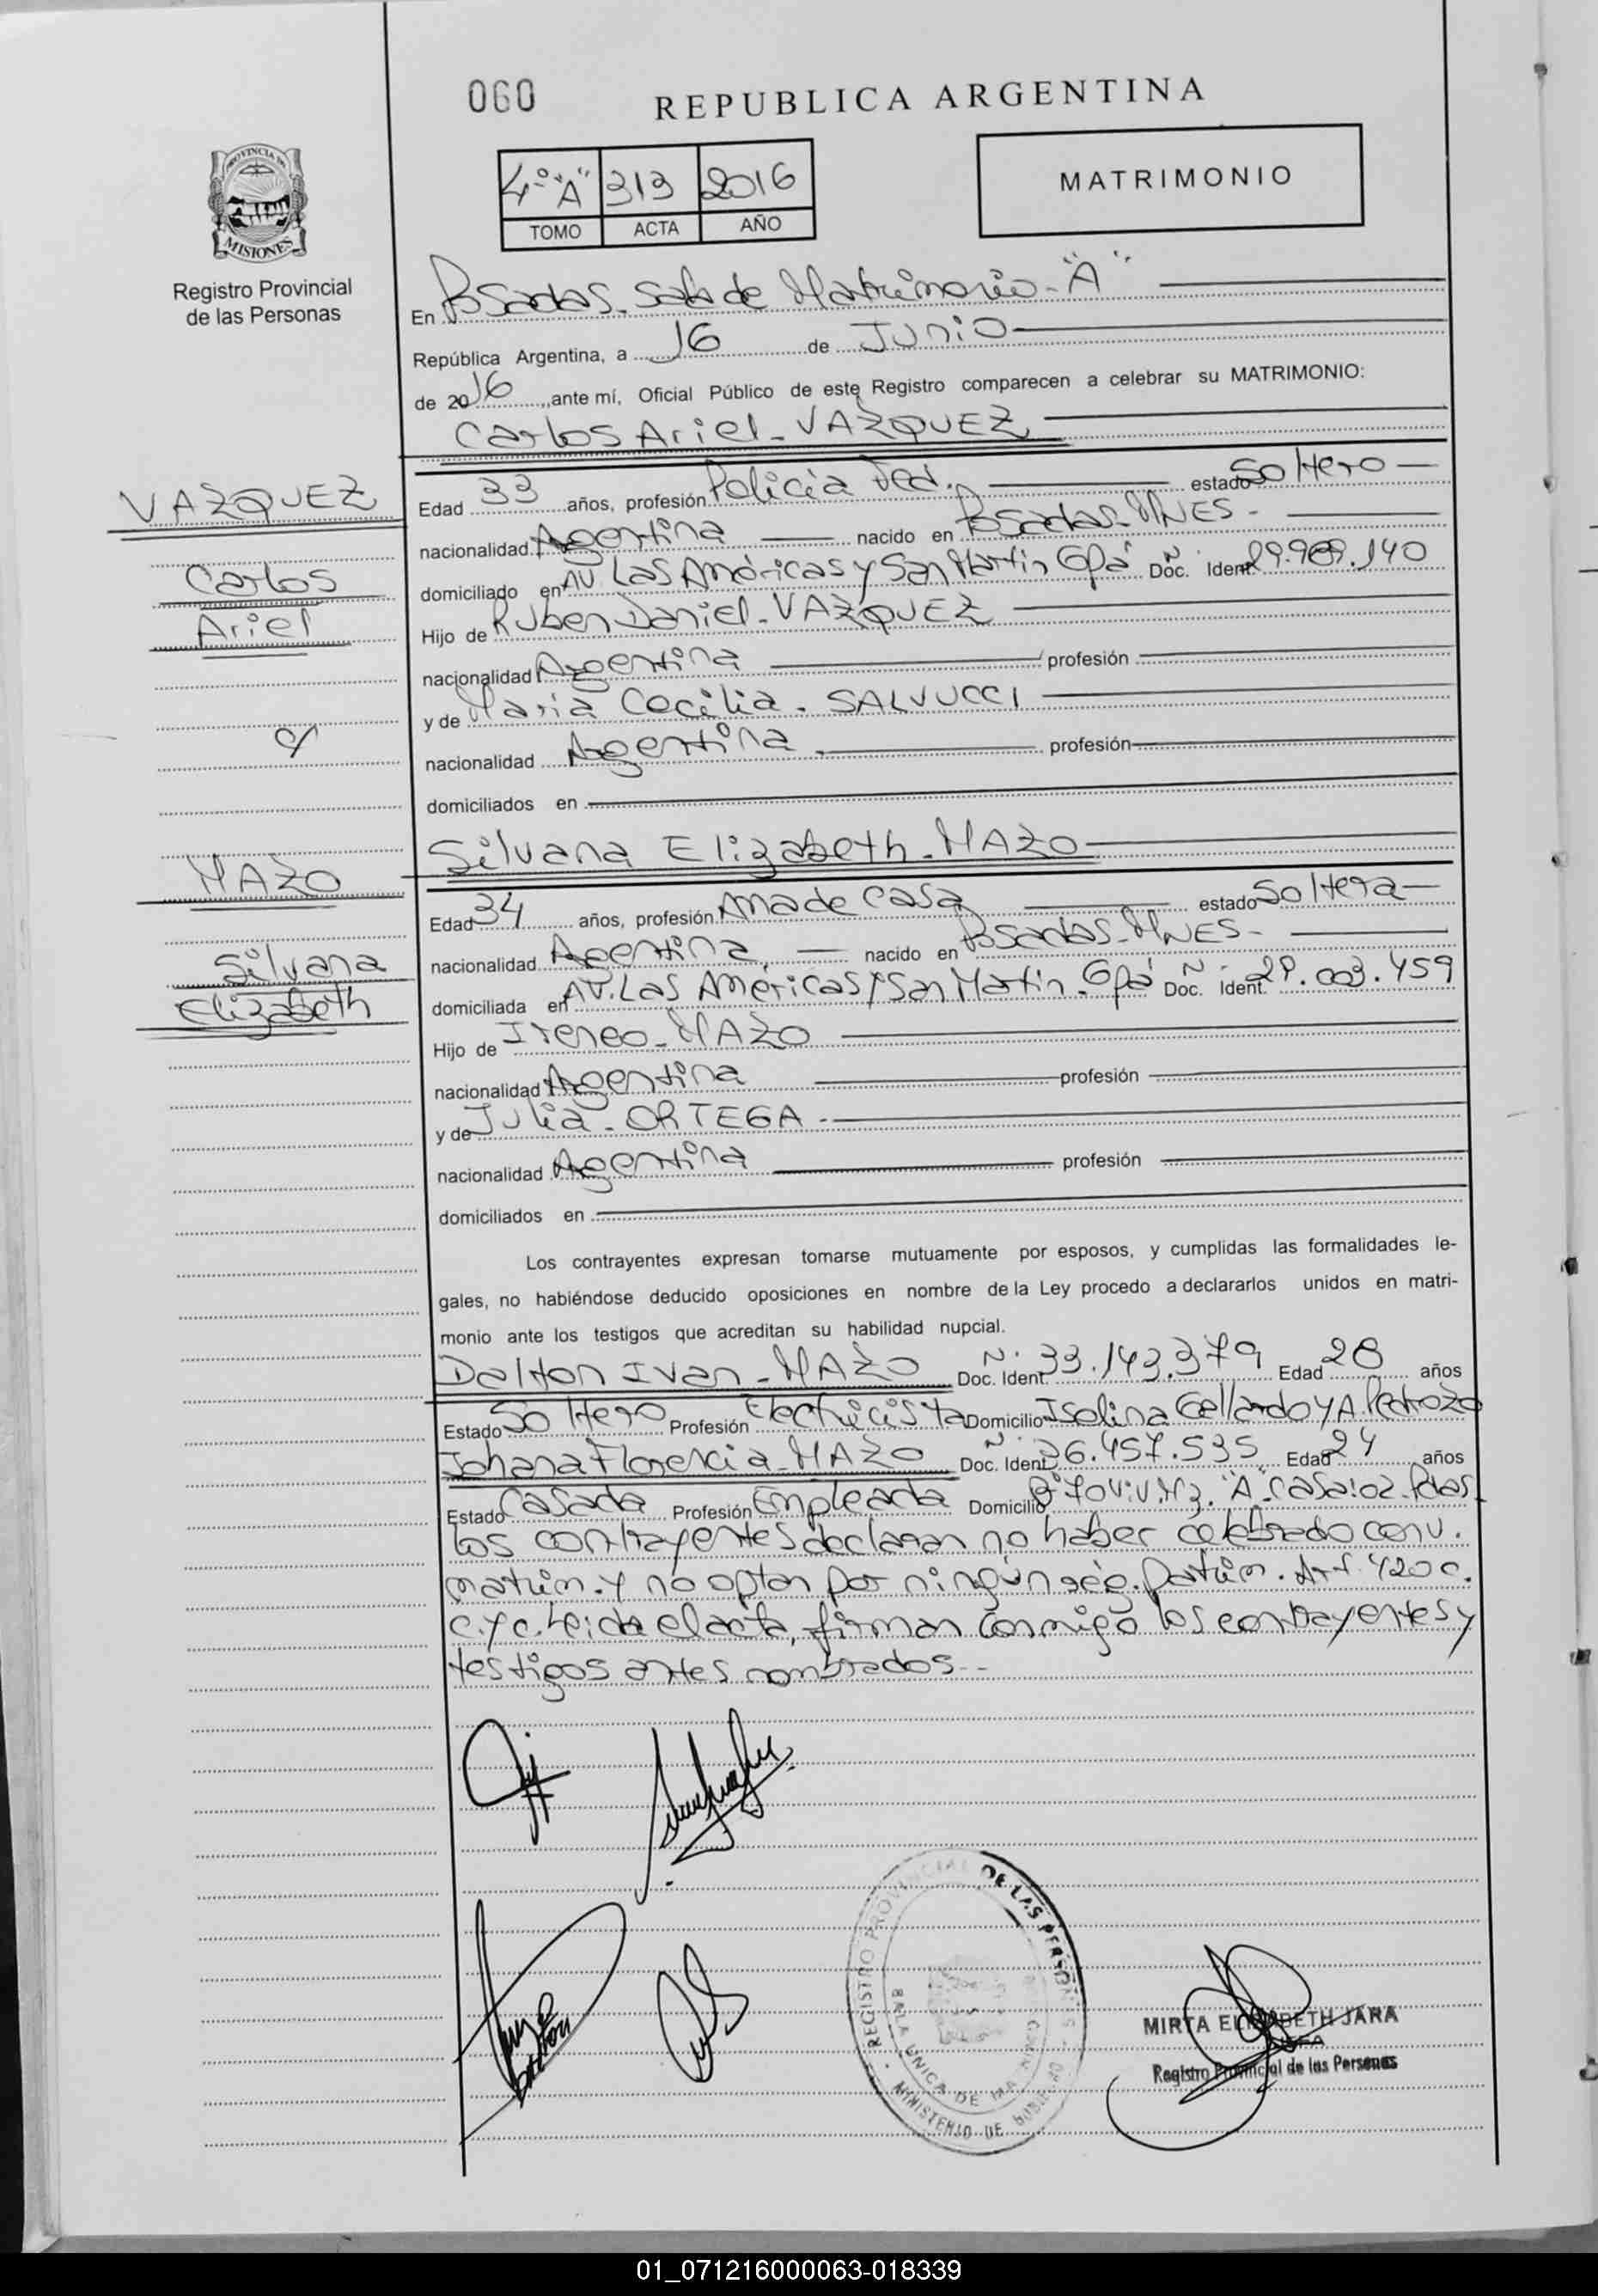 060
REPUBLICA ARGENTINA
PROVINCIA DE
MISIONES
Registro Provincial
de las Personas
4º "A" 313 2016
TOMO ACTA AÑO
MATRIMONIO
En Posadas. Sala de Matrimonio - "A"
República Argentina, a 16 de Junio
de 2016, ante mí, Oficial Público de este Registro comparecen a celebrar su MATRIMONIO:
Carlos Ariel - VAZQUEZ
VAZQUEZ
Carlos
Ariel
c/
MAZO
Silvana
Elizabeth
Edad 33 años, profesión Policía Fed. estado Soltero
nacionalidad Argentina nacido en Posadas - MNES -
domiciliado en AV. Las Américas y San Martín Gpá Doc. Ident. Nº 29.969.140
Hijo de Ruben Daniel - VAZQUEZ
nacionalidad Argentina profesión
y de Maria Cecilia - SALVUCCI
nacionalidad Argentina profesión
domiciliados en
Silvana Elizabeth - MAZO
Edad 34 años, profesión Ama de casa estado Soltera
nacionalidad Argentina nacido en Posadas - MNES -
domiciliada en AV. Las Américas y San Martín - Gpá Doc. Ident. Nº 29.003.459
Hijo de Ireneo - MAZO
nacionalidad Argentina profesión
y de Julia - ORTEGA -
nacionalidad Argentina profesión
domiciliados en
Los contrayentes expresan tomarse mutuamente por esposos, y cumplidas las formalidades le-
gales, no habiéndose deducido oposiciones en nombre de la Ley procedo a declararlos unidos en matri-
monio ante los testigos que acreditan su habilidad nupcial.
Dalton Ivan - MAZO Doc. Ident. Nº 33.143.379 Edad 28 años
Estado Soltero Profesión Electricista Domicilio Isolina Gallardo y A. Pedrozo
Johana Florencia - MAZO Doc. Ident. Nº 36.457.535 Edad 24 años
Estado Casada Profesión Empleada Domicilio Bº "A" Casa: 02. Pdas.
Los contrayentes declaran no haber celebrado conv.
matrim. y no optan por ningún rég. patrim. Art. 420 c.
C. y C. Leída el acta, firman conmigo los contrayentes y
testigos antes nombrados. -
REGISTRO PROVINCIAL DE LAS PERSONAS
MINISTERIO DE GOBIERNO
MIRTA ELIZABETH JARA
Registro Provincial de las Personas
01_071216000063-018339